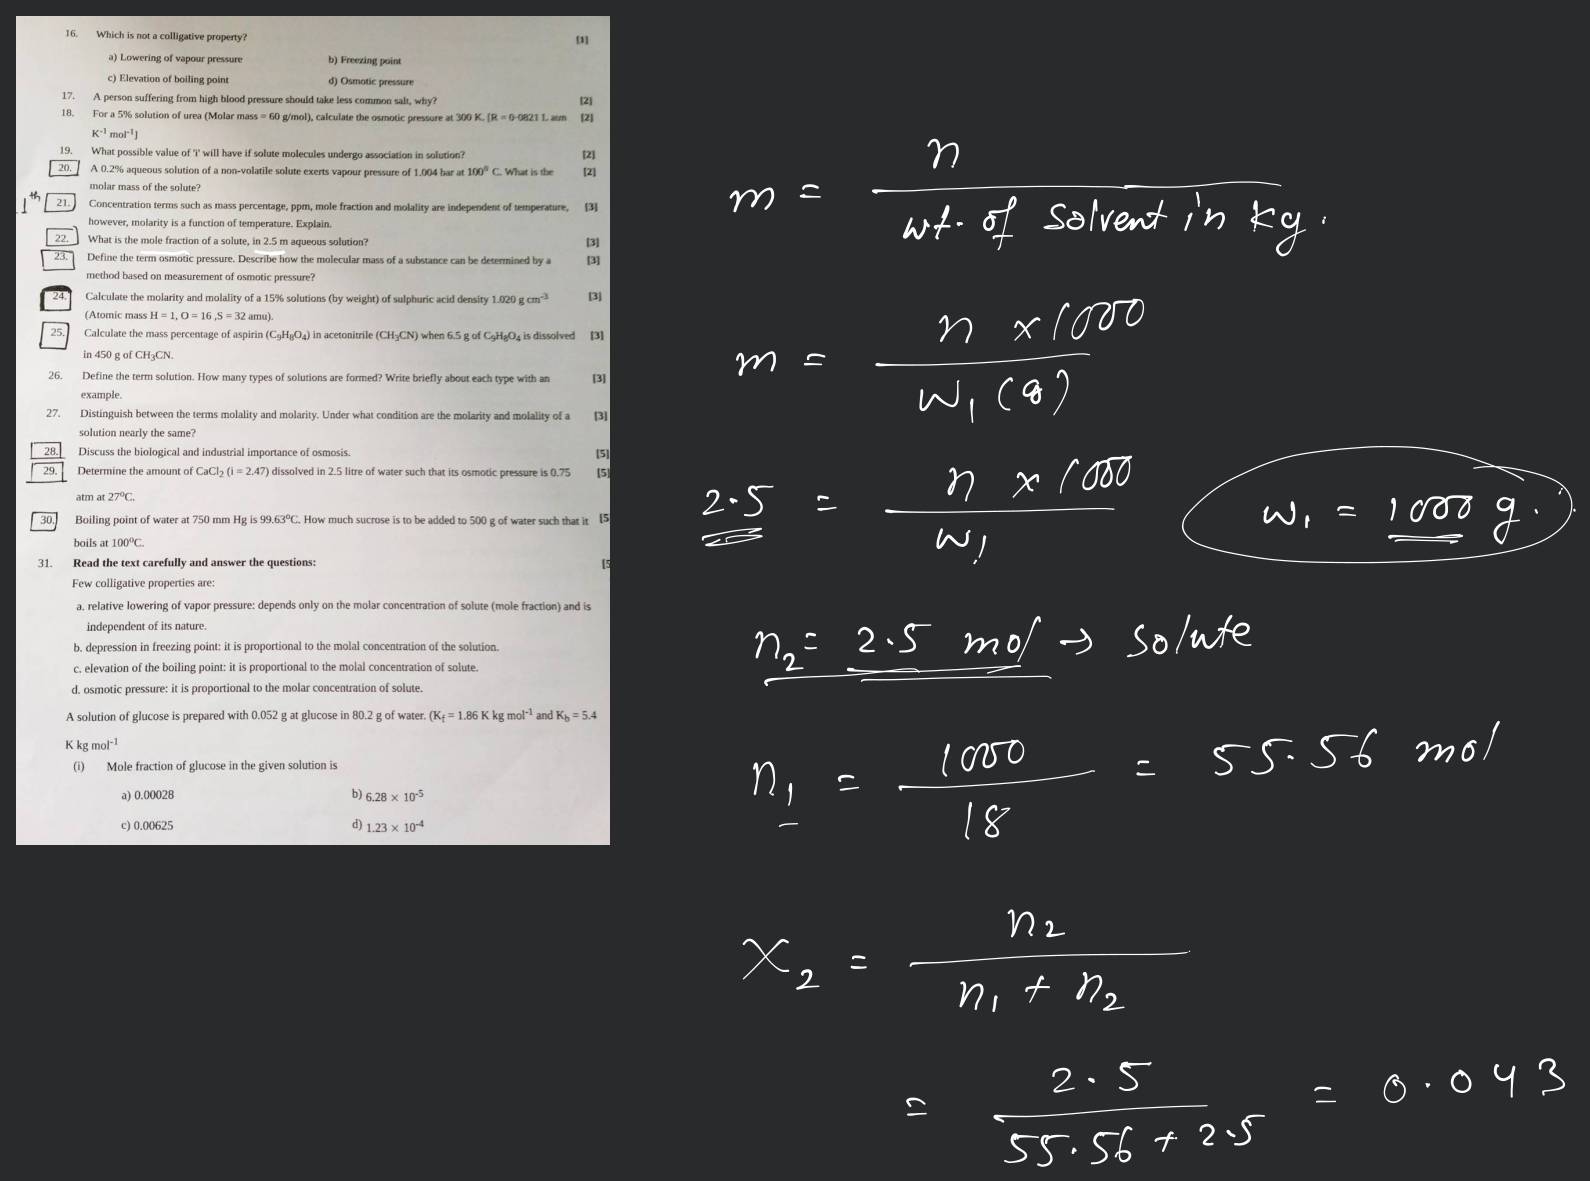 16. Which is not a colligative property? [1]
a) Lowering of vapour pressure b) Freezing point
c) Elevation of boiling point d) Osmotic pressure
17. A person suffering from high blood pressure should take less common salt, why? [2]
18. For a 5% solution of urea (Molar mass = 60 g/mol), calculate the osmotic pressure at 300 K. [R = 0·0821 L atm [2]
K⁻¹ mol⁻¹]
19. What possible value of 'i' will have if solute molecules undergo association in solution? [2]
20. A 0.2% aqueous solution of a non-volatile solute exerts vapour pressure of 1.004 bar at 100⁰ C. What is the [2]
molar mass of the solute?
1th 21. Concentration terms such as mass percentage, ppm, mole fraction and molality are independent of temperature, [3]
however, molarity is a function of temperature. Explain.
22. What is the mole fraction of a solute, in 2.5 m aqueous solution? [3]
23. Define the term osmotic pressure. Describe how the molecular mass of a substance can be determined by a [3]
method based on measurement of osmotic pressure?
24. Calculate the molarity and molality of a 15% solutions (by weight) of sulphuric acid density 1.020 g cm⁻³ [3]
(Atomic mass H = 1, O = 16 ,S = 32 amu).
25. Calculate the mass percentage of aspirin (C₉H₈O₄) in acetonitrile (CH₃CN) when 6.5 g of C₉H₈O₄ is dissolved [3]
in 450 g of CH₃CN.
26. Define the term solution. How many types of solutions are formed? Write briefly about each type with an [3]
example.
27. Distinguish between the terms molality and molarity. Under what condition are the molarity and molality of a [3]
solution nearly the same?
28. Discuss the biological and industrial importance of osmosis. [5]
29. Determine the amount of CaCl₂ (i = 2.47) dissolved in 2.5 litre of water such that its osmotic pressure is 0.75 [5]
atm at 27⁰C.
30. Boiling point of water at 750 mm Hg is 99.63⁰C. How much sucrose is to be added to 500 g of water such that it [5
boils at 100⁰C.
31. Read the text carefully and answer the questions: [5
Few colligative properties are:
a. relative lowering of vapor pressure: depends only on the molar concentration of solute (mole fraction) and is
independent of its nature.
b. depression in freezing point: it is proportional to the molal concentration of the solution.
c. elevation of the boiling point: it is proportional to the molal concentration of solute.
d. osmotic pressure: it is proportional to the molar concentration of solute.
A solution of glucose is prepared with 0.052 g at glucose in 80.2 g of water. (K_f = 1.86 K kg mol⁻¹ and K_b = 5.4
K kg mol⁻¹
(i) Mole fraction of glucose in the given solution is
a) 0.00028 b) 6.28 × 10⁻⁵
c) 0.00625 d) 1.23 × 10⁻⁴
m = n / wt. of Solvent in kg.
m = n × 1000 / W₁ (g)
2.5 = n × 1000 / W₁
W₁ = 1000 g.
n₂ = 2.5 mol → Solute
n₁ = 1000 / 18 = 55.56 mol
X₂ = n₂ / n₁ + n₂
= 2.5 / 55.56 + 2.5 = 0.043